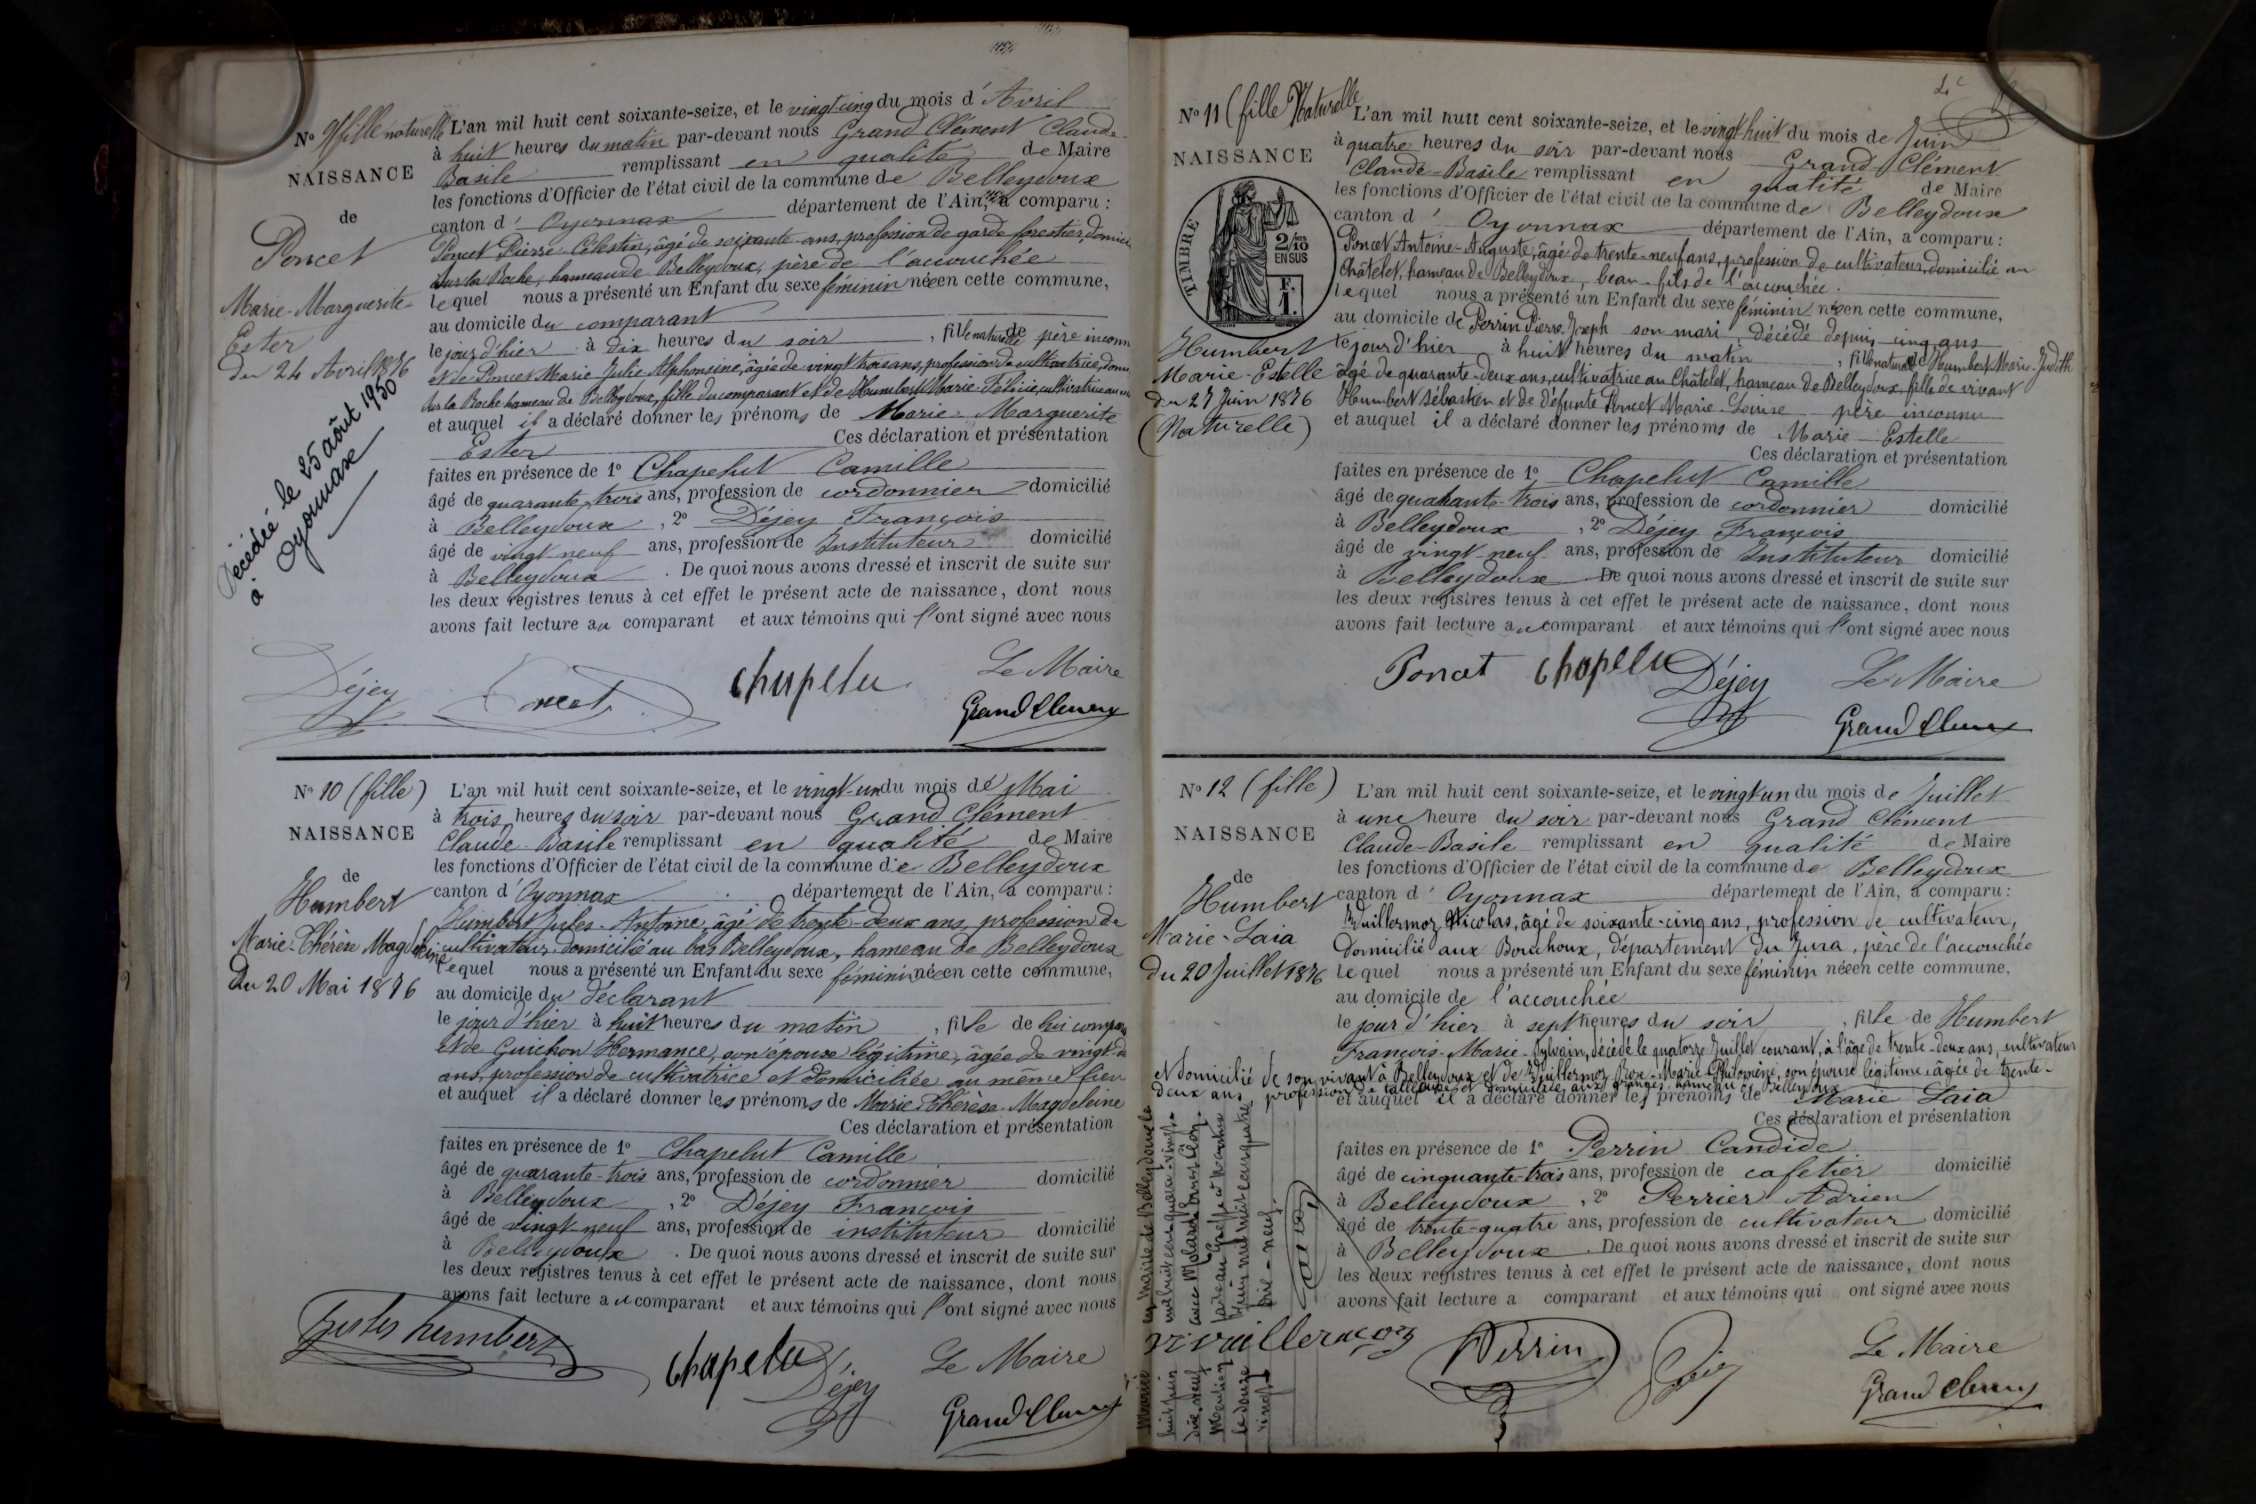 No 9 fille naturelle
NAISSANCE
de
Poncet
Marie-Marguerite
Ester
du 24 Avril 1876
Décédée le 25 août 1950
à Oyonnax
L'an mil huit cent soixante-seize, et le vingt-cinq du mois d'Avril
à huit heures du matin par-devant nous Grand Clément Claude
Basile remplissant en qualité de Maire
les fonctions d'Officier de l'état civil de la commune de Belleydoux
canton d'Oyonnax département de l'Ain, a comparu :
Poncet Pierre Célestin, âgé de soixante ans, profession de garde forestier, domicil
sur la Roche, hameau de Belleydoux, père de l'accouchée
lequel nous a présenté un Enfant du sexe féminin née en cette commune,
au domicile du comparant
le jour d'hier à dix heures du soir, fille naturelle de père inconnu
et de Poncet Marie Julie Alphonsine, âgée de vingt trois ans, profession de cultivatrice, dom
sur la Roche hameau de Belleydoux, fille du comparant et de Humbert Marie-Félicie, cultivatrice au m
et auquel il a déclaré donner les prénoms de Marie-Marguerite
Ester Ces déclaration et présentation
faites en présence de 1o Chapelut Camille
âgé de quarante-trois ans, profession de cordonnier domicilié
à Belleydoux, 2o Déjey François
âgé de vingt-neuf ans, profession de Instituteur domicilié
à Belleydoux. De quoi nous avons dressé et inscrit de suite sur
les deux registres tenus à cet effet le présent acte de naissance, dont nous
avons fait lecture au comparant et aux témoins qui l'ont signé avec nous
Déjey Poncet Chapelu Le Maire
Grand Clément
No 10 (fille)
NAISSANCE
de
Humbert
Marie-Thérèse Magdeleine
du 20 Mai 1876
L'an mil huit cent soixante-seize, et le vingt-un du mois de Mai
à trois heures du soir par-devant nous Grand Clément
Claude-Basile remplissant en qualité de Maire
les fonctions d'Officier de l'état civil de la commune de Belleydoux
canton d'Oyonnax département de l'Ain, a comparu :
Humbert Jules-Antoine, âgé de trente-deux ans, profession de
cultivateur, domicilié au bas Belleydoux, hameau de Belleydoux
lequel nous a présenté un Enfant du sexe féminin née en cette commune,
au domicile du déclarant
le jour d'hier à huit heures du matin, fille de lui compar
et de Guichon Hermance, son épouse légitime, âgée de vingt-
ans, profession de cultivatrice et domiciliée au même lieu
et auquel il a déclaré donner les prénoms de Marie-Thérèse-Magdeleine
Ces déclaration et présentation
faites en présence de 1o Chapelut Camille
âgé de quarante-trois ans, profession de cordonnier domicilié
à Belleydoux, 2o Déjey François
âgé de vingt-neuf ans, profession de instituteur domicilié
à Belleydoux. De quoi nous avons dressé et inscrit de suite sur
les deux registres tenus à cet effet le présent acte de naissance, dont nous
avons fait lecture au comparant et aux témoins qui l'ont signé avec nous
Jules humbert Chapelu Déjey Le Maire
Grand Clément
No 11 (fille Naturelle
NAISSANCE
TIMBRE
2/10 EN SUS
F. 1.
Humbert
Marie-Estelle
du 27 Juin 1876
(Naturelle)
L'an mil huit cent soixante-seize, et le vingt-huit du mois de Juin
à quatre heures du soir par-devant nous Grand Clément
Claude-Basile remplissant en qualité de Maire
les fonctions d'Officier de l'état civil de la commune de Belleydoux
canton d'Oyonnax département de l'Ain, a comparu :
Poncet Antoine-Auguste, âgé de trente-neuf ans, profession de cultivateur, domicilié au
Châtelet, hameau de Belleydoux, beau-fils de l'accouchée.
lequel nous a présenté un Enfant du sexe féminin née en cette commune,
au domicile de Perrin Pierre-Joseph son mari, décédé depuis cinq ans
le jour d'hier à huit heures du matin, fille naturelle de Humbert Marie-Judith
âgé de quarante-deux ans, cultivatrice au Châtelet, hameau de Belleydoux, fille de vivant
Humbert Sébastien et de défunte Poncet Marie-Louise père inconnu
et auquel il a déclaré donner les prénoms de Marie-Estelle
Ces déclaration et présentation
faites en présence de 1o Chapelut Camille
âgé de quarante-trois ans, profession de cordonnier domicilié
à Belleydoux, 2o Déjey François
âgé de vingt-neuf ans, profession de Instituteur domicilié
à Belleydoux De quoi nous avons dressé et inscrit de suite sur
les deux registres tenus à cet effet le présent acte de naissance, dont nous
avons fait lecture au comparant et aux témoins qui l'ont signé avec nous
Poncet Chapelu Déjey Le Maire
Grand Clément
No 12 (fille)
NAISSANCE
de
Humbert
Marie-Laia
du 20 Juillet 1876
L'an mil huit cent soixante-seize, et le vingt un du mois de Juillet
à une heure du soir par-devant nous Grand Clément
Claude-Basile remplissant en qualité de Maire
les fonctions d'Officier de l'état civil de la commune de Belleydoux
canton d'Oyonnax département de l'Ain, a comparu :
Vuillermoz Nicolas, âgé de soixante-cinq ans, profession de cultivateur,
Domicilié aux Bouchoux, département du Jura, père de l'accouchée
lequel nous a présenté un Enfant du sexe féminin née en cette commune,
au domicile de l'accouchée
le jour d'hier à sept heures du soir, fille de Humbert
François-Marie-Sylvain, décédé le quatorze Juillet courant, à l'âge de trente-deux ans, cultivateur
et domicilié de son vivant à Belleydoux et de Vuillermoz Rose-Marie-Philomène, son épouse légitime, âgée de trente-
deux ans, profession de et domiciliée aux granges hameau de Belleydoux
et auquel il a déclaré donner les prénoms de Marie Laia
Ces déclaration et présentation
faites en présence de 1o Perrin Candide
âgé de cinquante-trois ans, profession de cafetier domicilié
à Belleydoux, 2o Perrier Adrien
âgé de trente-quatre ans, profession de cultivateur domicilié
à Belleydoux. De quoi nous avons dressé et inscrit de suite sur
les deux registres tenus à cet effet le présent acte de naissance, dont nous
avons fait lecture a comparant et aux témoins qui ont signé avec nous
Mariée en mairie de Belleydoux le
huit juin mil huit cent quatre-vingt-
dix-neuf avec
Mention faite au Greffe à Nantua
le douze Juin mil huit cent quatre
vingt dix-neuf.
Vuillermoz Perrin Le Maire
Grand Clément